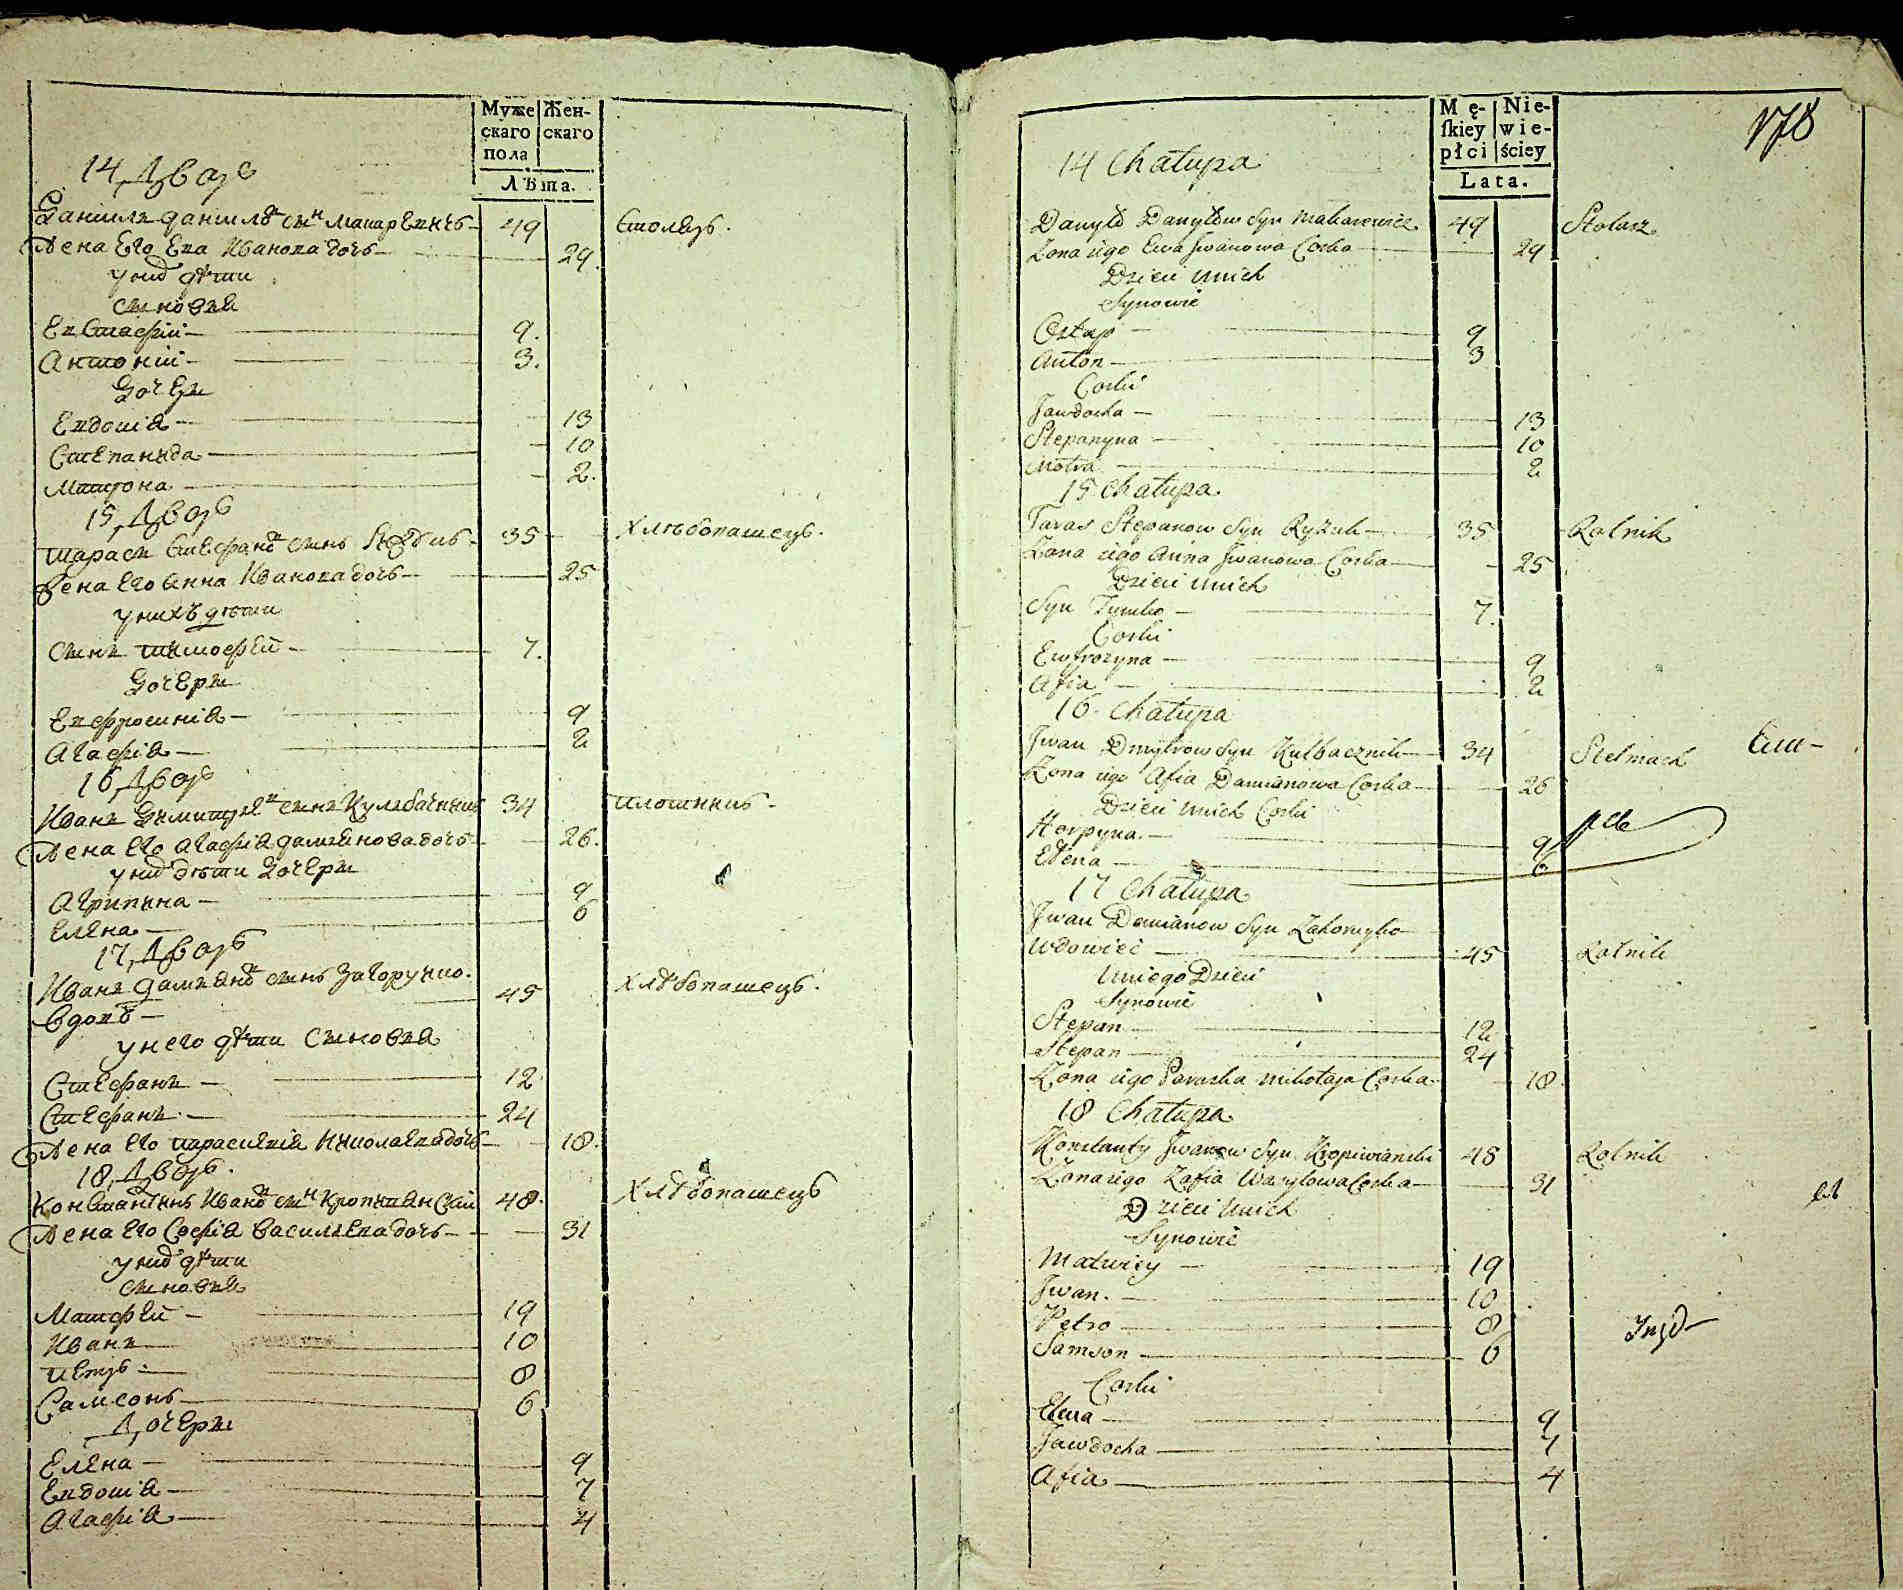 Муже
скаго
пола
Жен-
скаго
Лѣта.
14, Дворъ
Даниилъ Данилов сын Макаревичъ 49 Столяръ.
Жена Его Ева Иванова дочь 29.
у них дѣти
сыновья
Евстафій 9.
Антоній 3.
Дочери
Евдокія 13
Степанида 10
Матрона 2.
15, Дворъ
Тарасъ Стефанов сынъ 35 Хлѣбопашецъ.
Жена Его Анна Иванова дочь 25
у нихъ дѣти
Сынъ Тимофей 7.
Дочери
Евфросинія 9
Агафія 2
16, Дворъ
Иванъ Димитрев сынъ Кулбачникъ 34
Жена Его Агафія Дамянова дочь 26.
у них дѣти Дочери
Агрипина 9
Елена 6
17, Дворъ
Иванъ Дамянов сынъ Загоруйко. 45 Хлѣбопашецъ.
Вдовъ
у него дѣти Сыновья
Стефанъ 12
Стефанъ 24
Жена Его Параскевія Николаева дочь 18.
18, Дворъ.
Константинъ Иванов сын Кропивянскій 48. Хлѣбопашецъ
Жена Его Софія Василіева дочь 31
у них дѣти
сыновья
Матфей 19
Иванъ 10
Петръ 8
Самсонъ 6
Дочери
Елена 9
Евдокія 7
Агафія 4
178
Mę-
skiey
płci
Nie-
wie-
ściey
Lata.
14 Chałupa
Danyło Danyłow Syn Makarewicz 49 Stolarz
Zona iego Ewa Jwanowa Corka 29
Dzieci Unich
Synowie
Ostap 9
Anton 3
Corki
Jawdocha 13
Stepanyna 10
Motra 2
15 Chałupa.
Taras Stepanow Syn Ryżuk 35 Rolnik
Zona iego Anna Jwanowa Corka 25
Dzieci Unich
Syn Tymko 7.
Corki
Ewfrozyna 9
Afia 2
16. Chałupa
Jwan Dmytrow Syn Kulbacznik 34 Stelmach
Zona iego Afia Damianowa Corka 26
Dzieci Unich Corki
Horpyna. 9
Ełena 6
17 Chałupa
Jwan Demianow Syn Zahoruyko
Wdowiec 45 Rolnik
Uniego Dzieci
Synowie
Stepan 12
Stepan 24
Zona iego Paraska Mikołaja Corka 18
18 Chałupa
Konstanty Jwanow Syn Kropiwianski 48 Rolnik
Zona iego Zofia Wasylowa Corka 31
Dzieci Unich
Synowie
Matwiey 19
Jwan. 10
Petro 8
Samson 6
Corki
Ełena 9
Jawdocha 7
Afia 4